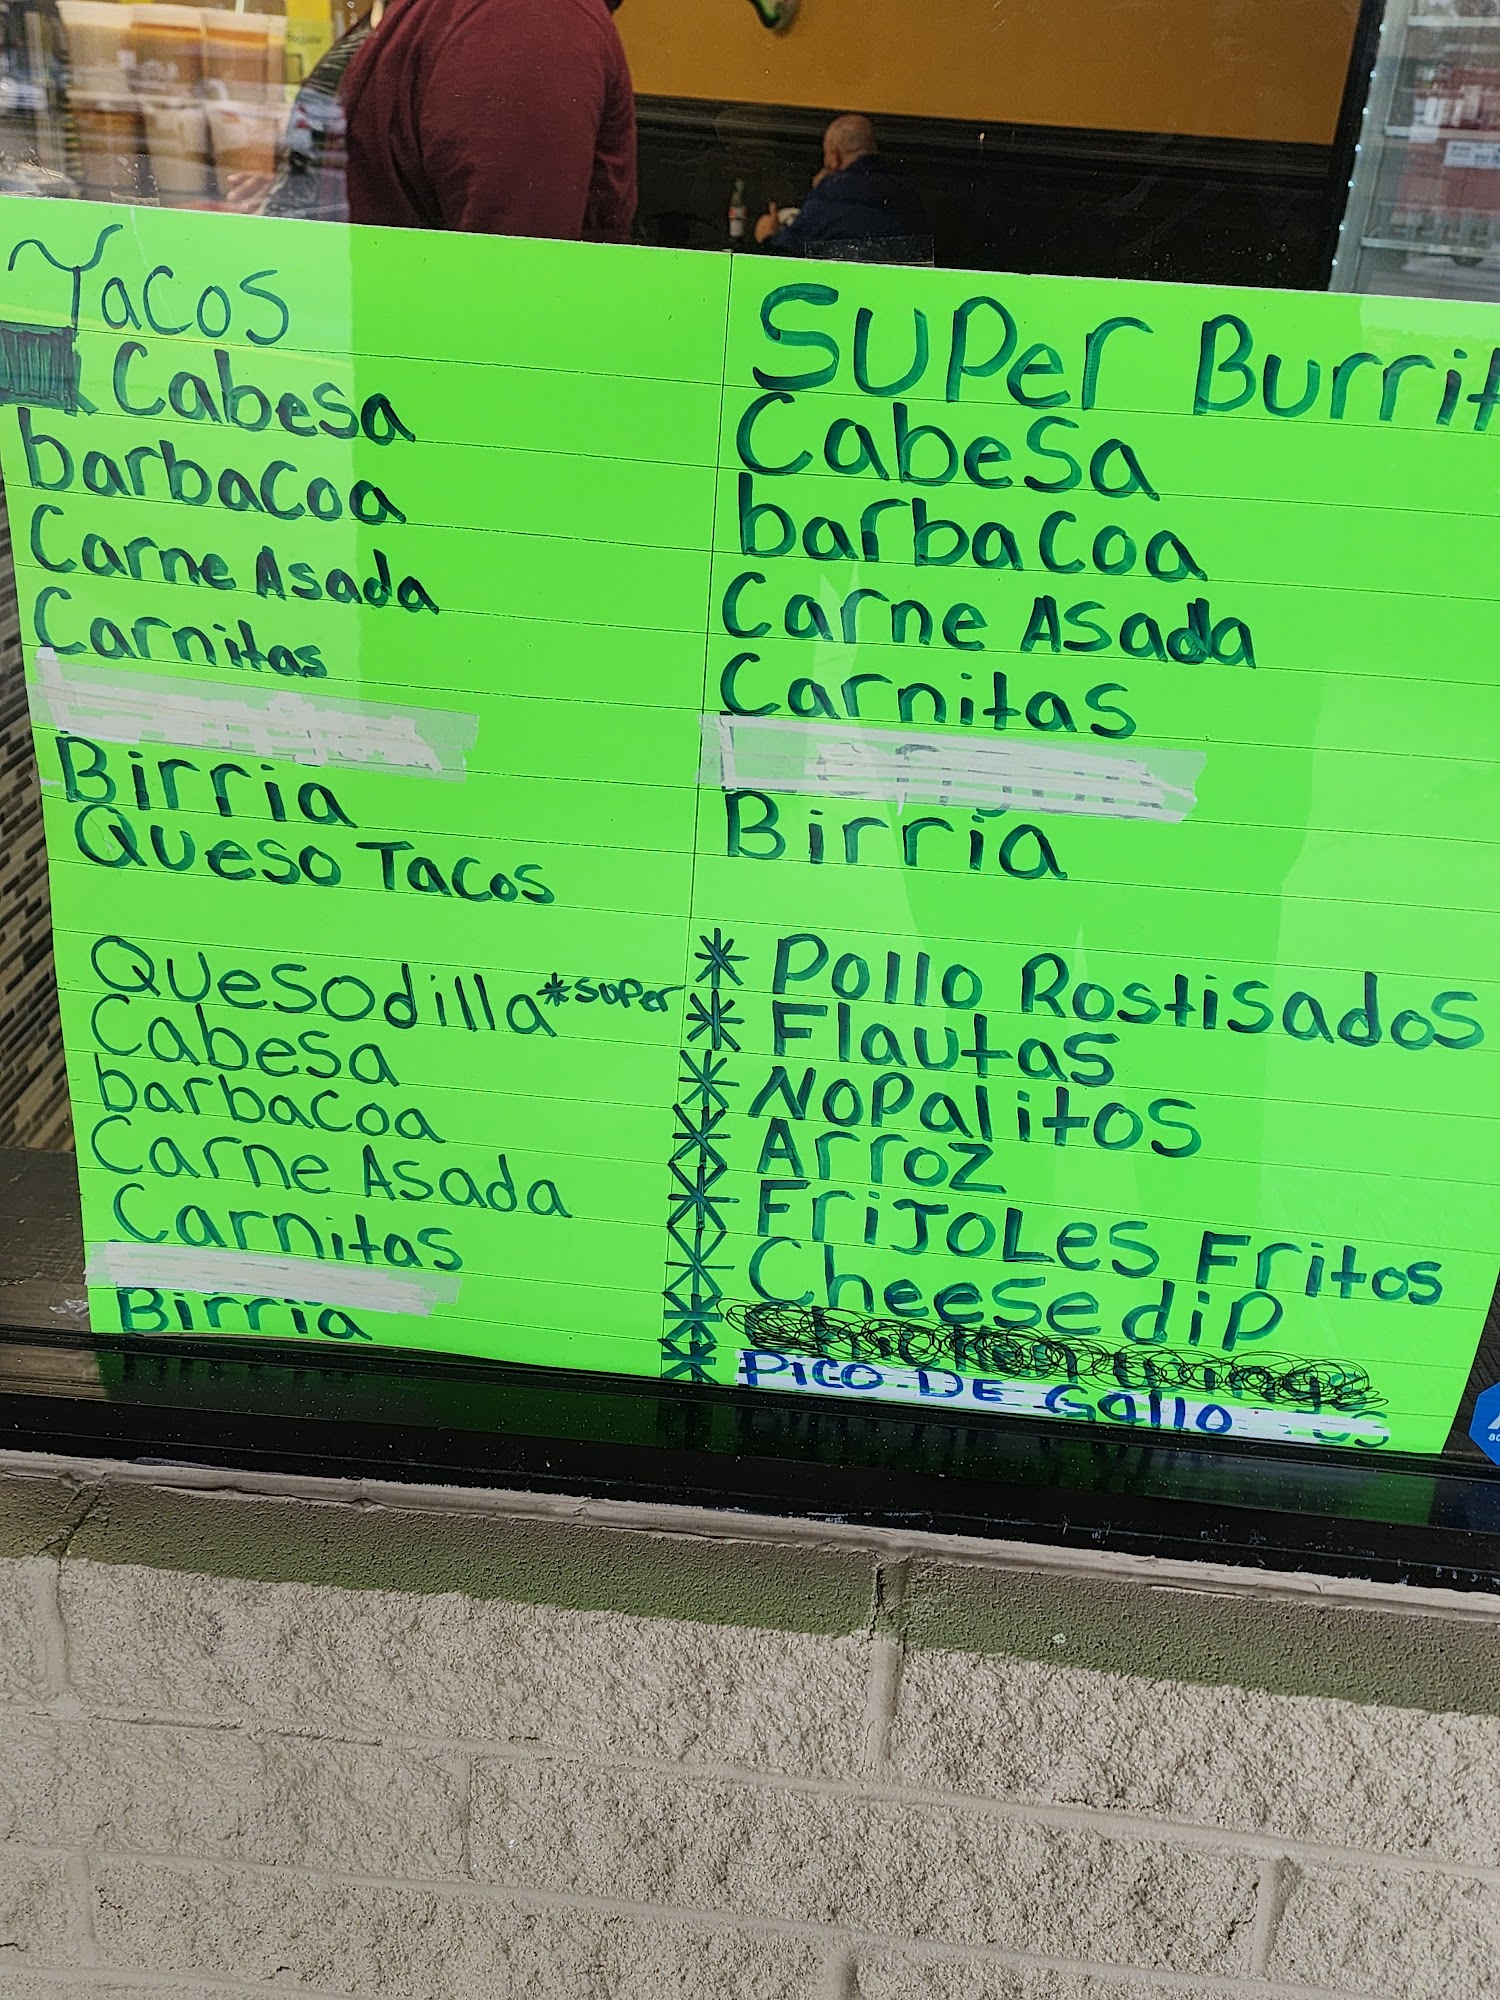 Tacos
Cabesa
barbacoa
Carne Asada
Carnitas
Birria
Queso Tacos
Quesodilla *super
Cabesa
barbacoa
Carne Asada
Carnitas
Birria
Super Burrit
Cabesa
barbacoa
Carne Asada
Carnitas
Birria
* Pollo Rostisados
* Flautas
* Nopalitos
* Arroz
* Frijoles Fritos
* Cheese dip
* Chicken wings
* Pico De Gallo